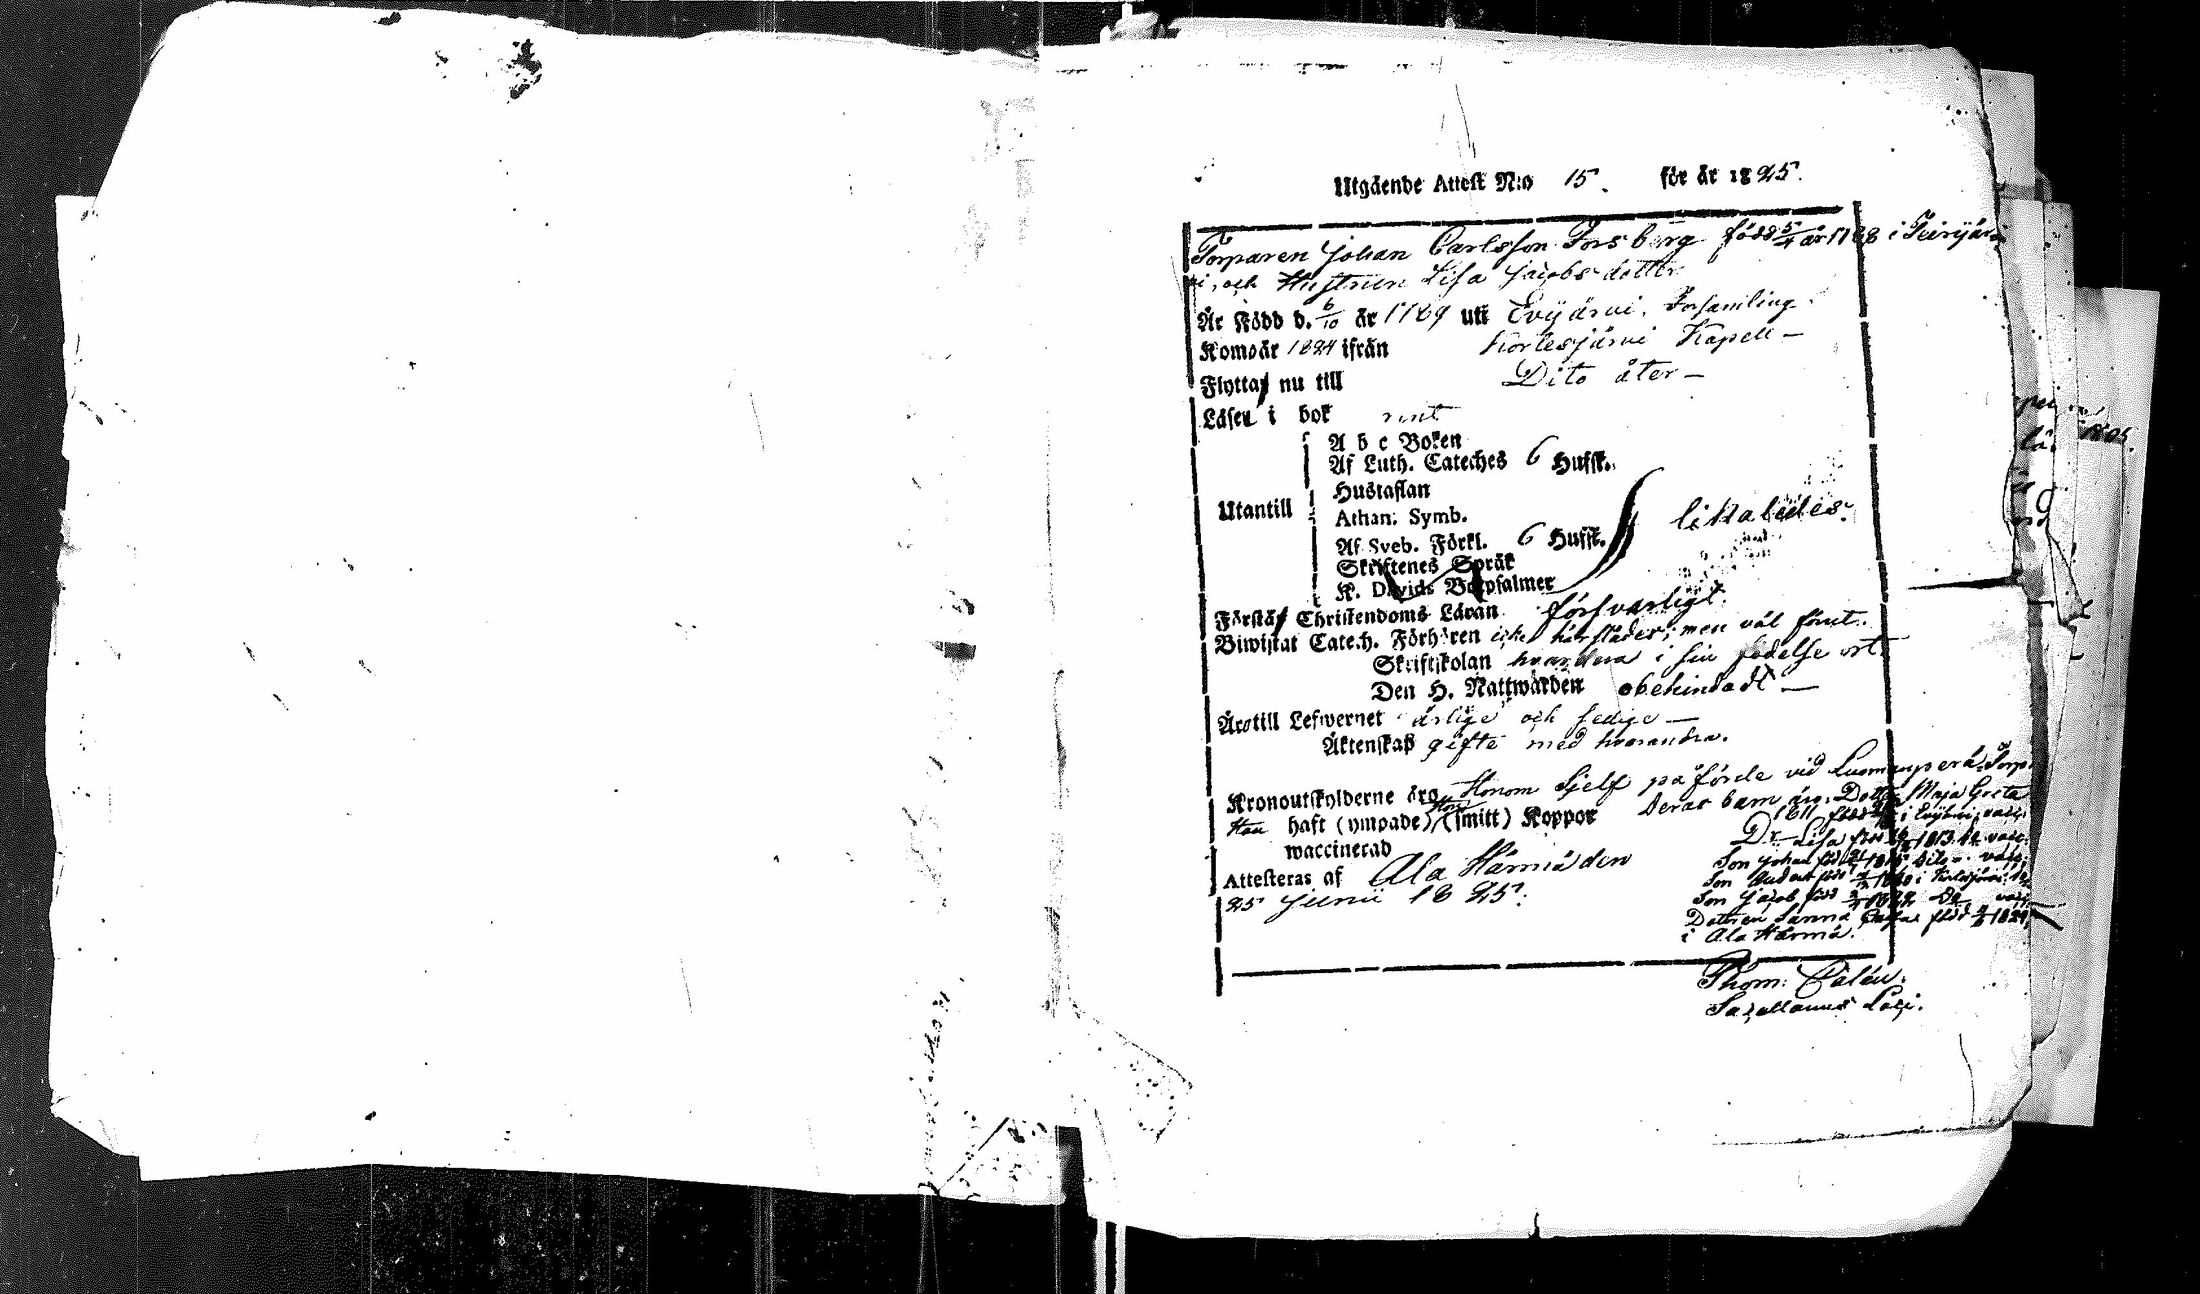 Utgående Attest N:o 15. för år 1825.
Torparen Johan Carlsson Forsberg född 5/4 år 1788 i Terijär
vi, och Hustrun Lisa Jacobsdotter
Är Född d. 6/10 år 1789 uti Evijärvi Församling.
Kom år 1824 ifrån Kortesjärvi Kapell –
Flytta nu till Dito åter –
Läser i bok rent
A b c Boken
Af Luth. Cateches 6 Hufst.
Hustaflan
Utantill
Athan. Symb.
likaledes.
Af Sveb. Förkl. 6 Hufst.
Skriftenes Språk
K. Davids Botpsalmer
Förstå Christendoms Läran försvarligt.
Biwistat Catech. Förhören icke härstädes, men väl förut.
Skriftskolan hvardera i sin födelse ort.
Den H. Nattwarden obehindradt –
Äro till Lefwernet ärlige och sedige –
Äktenskap gifte med hvarandra.
Kronoutskylderne äro Honom Sjelf påförde vid Luomanperä Torp
Han haft (ympade) Hon (smitt) Koppor Deras barn äro: Dottr. Maja Greta
1811 född i Evijärvi, vacc.
waccinerad
Dr. Lisa född 1813 vacc.
Attesteras af Ala Härmä den
Son Johan född Dito vacc.
Son född i Kortesjärvi
25 Junii 1825.
Son Jacob född 1822 Do vacc.
Dottren Sanna född 1824
i Ala Härmä.
Thom:
Sacellanus Loci.